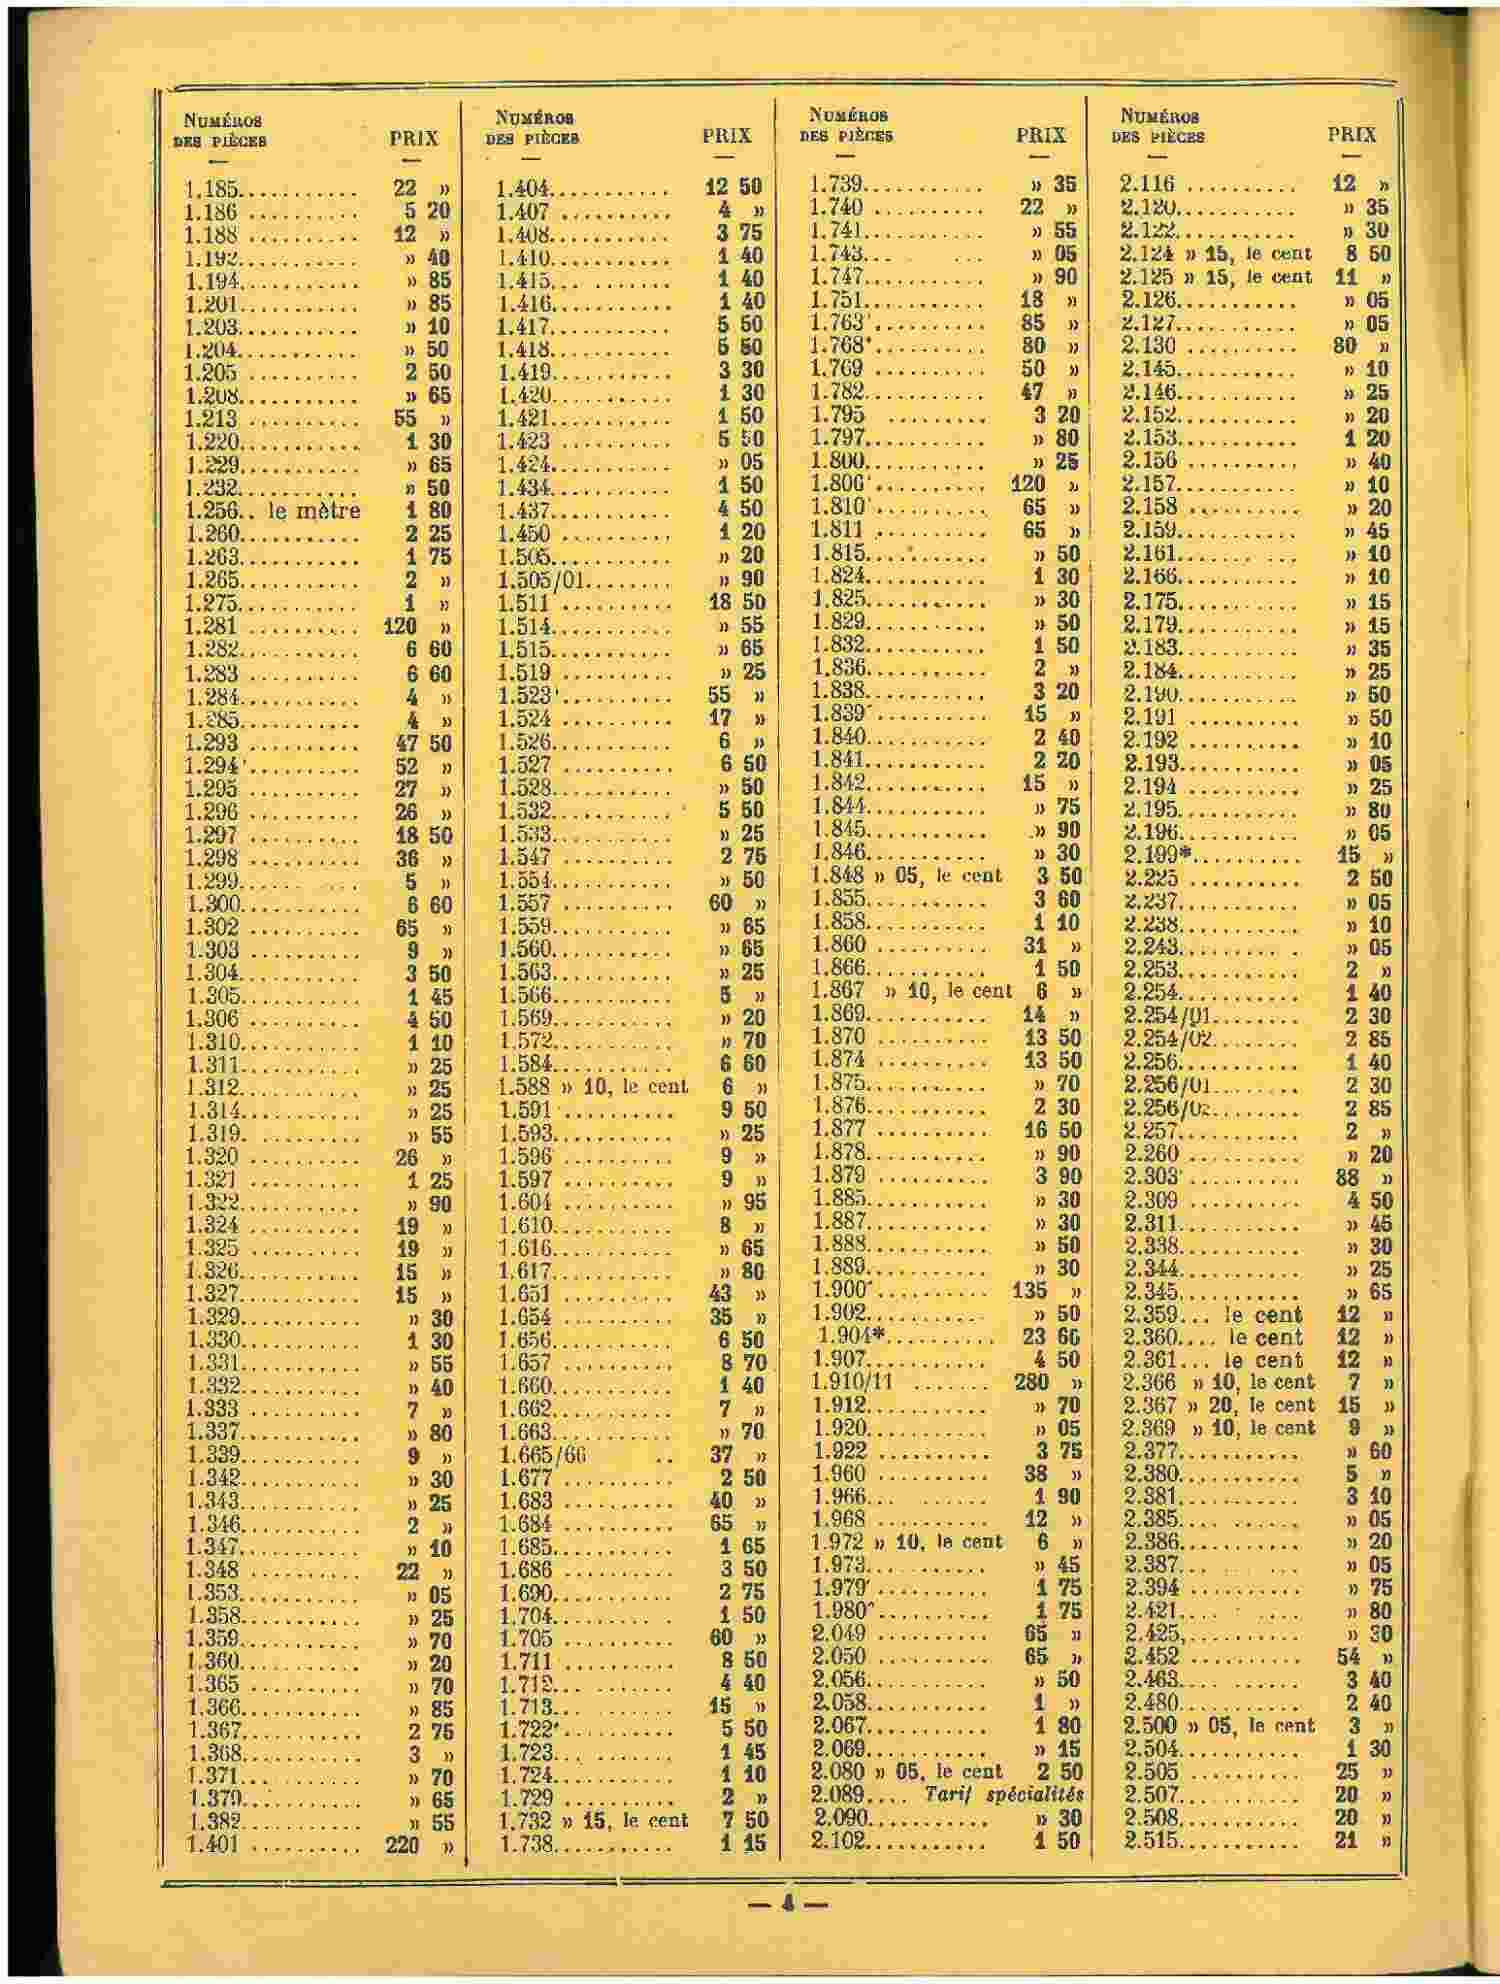 NUMÉROS
DES PIÈCES PRIX
1.185........... 22 »
1.186 .......... 5 20
1.188 .......... 12 »
1.192........... » 40
1.194........... » 85
1.201........... » 85
1.203........... » 10
1.204........... » 50
1.205 .......... 2 50
1.208........... » 65
1.213 .......... 55 »
1.220........... 1 30
1.229........... » 65
1.232........... » 50
1.256.. le mètre 1 80
1.260........... 2 25
1.263........... 1 75
1.265........... 2 »
1.275........... 1 »
1.281 .......... 120 »
1.282........... 6 60
1.283 .......... 6 60
1.284........... 4 »
1.285........... 4 »
1.293 .......... 47 50
1.294'.......... 52 »
1.295 .......... 27 »
1.296 .......... 26 »
1.297 .......... 18 50
1.298 .......... 36 »
1.299........... 5 »
1.300........... 6 60
1.302 .......... 65 »
1.303 .......... 9 »
1.304........... 3 50
1.305........... 1 45
1.306 .......... 4 50
1.310........... 1 10
1.311........... » 25
1.312........... » 25
1.314........... » 25
1.319........... » 55
1.320 .......... 26 »
1.321 .......... 1 25
1.322........... » 90
1.324 .......... 19 »
1.325 .......... 19 »
1.326........... 15 »
1.327........... 15 »
1.329........... » 30
1.330........... 1 30
1.331........... » 55
1.332........... » 40
1.333 .......... 7 »
1.337........... » 80
1.339........... 9 »
1.342........... » 30
1.343........... » 25
1.346........... 2 »
1.347........... » 10
1.348 .......... 22 »
1.353........... » 05
1.358........... » 25
1.359........... » 70
1.360........... » 20
1.365 .......... » 70
1.366........... » 85
1.367........... 2 75
1.368........... 3 »
1.371........... » 70
1.379........... » 65
1.382........... » 55
1.401 .......... 220 »
NUMÉROS
DES PIÈCES PRIX
1.404........... 12 50
1.407 .......... 4 »
1.408........... 3 75
1.410........... 1 40
1.415........... 1 40
1.416........... 1 40
1.417........... 5 50
1.418........... 5 50
1.419........... 3 30
1.420........... 1 30
1.421........... 1 50
1.423 .......... 5 50
1.424........... » 05
1.434........... 1 50
1.437........... 4 50
1.450 .......... 1 20
1.505........... » 20
1.505/01........ » 90
1.511 .......... 18 50
1.514........... » 55
1.515........... » 65
1.519 .......... » 25
1.523'.......... 55 »
1.524 .......... 17 »
1.526........... 6 »
1.527 .......... 6 50
1.528........... » 50
1.532........... 5 50
1.533........... » 25
1.547 .......... 2 75
1.554........... » 50
1.557 .......... 60 »
1.559........... » 65
1.560........... » 65
1.563........... » 25
1.566........... 5 »
1.569........... » 20
1.572........... » 70
1.584........... 6 60
1.588 » 10, le cent 6 »
1.591 .......... 9 50
1.593........... » 25
1.596 .......... 9 »
1.597 .......... 9 »
1.604 .......... » 95
1.610........... 8 »
1.616........... » 65
1.617........... » 80
1.651 .......... 43 »
1.654 .......... 35 »
1.656........... 6 50
1.657 .......... 8 70
1.660........... 1 40
1.662........... 7 »
1.663........... » 70
1.665/66 .. 37 »
1.677 .......... 2 50
1.683 .......... 40 »
1.684 .......... 65 »
1.685........... 1 65
1.686 .......... 3 50
1.690........... 2 75
1.704........... 1 50
1.705 .......... 60 »
1.711 .......... 8 50
1.712........... 4 40
1.713........... 15 »
1.722'.......... 5 50
1.723........... 1 45
1.724........... 1 10
1.729 .......... 2 »
1.732 » 15, le cent 7 50
1.738........... 1 15
NUMÉROS
DES PIÈCES PRIX
1.739........... » 35
1.740 .......... 22 »
1.741........... » 55
1.743... ... » 05
1.747........... » 90
1.751........... 18 »
1.763'.......... 85 »
1.768*.......... 80 »
1.769 .......... 50 »
1.782........... 47 »
1.795 ......... 3 20
1.797........... » 80
1.800........... » 25
1.806'.......... 120 »
1.810'.......... 65 »
1.811 .......... 65 »
1.815........... » 50
1.824........... 1 30
1.825........... » 30
1.829........... » 50
1.832........... 1 50
1.836........... 2 »
1.838........... 3 20
1.839'.......... 15 »
1.840........... 2 40
1.841........... 2 20
1.842........... 15 »
1.844........... » 75
1.845........... » 90
1.846........... » 30
1.848 » 05, le cent 3 50
1.855........... 3 60
1.858........... 1 10
1.860 .......... 31 »
1.866........... 1 50
1.867 » 10, le cent 6 »
1.869........... 14 »
1.870 .......... 13 50
1.874 .......... 13 50
1.875........... » 70
1.876........... 2 30
1.877 .......... 16 50
1.878........... » 90
1.879 .......... 3 90
1.885........... » 30
1.887........... » 30
1.888........... » 50
1.889........... » 30
1.900'.......... 135 »
1.902........... » 50
1.904*.......... 23 60
1.907........... 4 50
1.910/11 ....... 280 »
1.912........... » 70
1.920........... » 05
1.922 .......... 3 75
1.960 .......... 38 »
1.966........... 1 90
1.968 .......... 12 »
1.972 » 10, le cent 6 »
1.973........... » 45
1.979'.......... 1 75
1.980'.......... 1 75
2.049 .......... 65 »
2.050 .......... 65 »
2.056........... » 50
2.058........... 1 »
2.067........... 1 80
2.069........... » 15
2.080 » 05, le cent 2 50
2.089.... Tarif spécialités
2.090........... » 30
2.102........... 1 50
NUMÉROS
DES PIÈCES PRIX
2.116 .......... 12 »
2.120........... » 35
2.122........... » 30
2.124 » 15, le cent 8 50
2.125 » 15, le cent 11 »
2.126........... » 05
2.127........... » 05
2.130 .......... 80 »
2.145........... » 10
2.146........... » 25
2.152........... » 20
2.153........... 1 20
2.156 .......... » 40
2.157........... » 10
2.158 .......... » 20
2.159........... » 45
2.161........... » 10
2.166........... » 10
2.175........... » 15
2.179........... » 15
2.183........... » 35
2.184........... » 25
2.190........... » 50
2.191 .......... » 50
2.192 .......... » 10
2.193........... » 05
2.194 .......... » 25
2.195........... » 80
2.196........... » 05
2.199*.......... 15 »
2.225 .......... 2 50
2.237........... » 05
2.238........... » 10
2.243......... . » 05
2.253........... 2 »
2.254........... 1 40
2.254/01........ 2 30
2.254/02........ 2 85
2.256........... 1 40
2.256/01........ 2 30
2.256/02........ 2 85
2.257........... 2 »
2.260 .......... » 20
2.303'.......... 88 »
2.309 .......... 4 50
2.311........... » 45
2.338........... » 30
2.344........... » 25
2.345........... » 65
2.359... le cent 12 »
2.360.... le cent 12 »
2.361... le cent 12 »
2.366 » 10, le cent 7 »
2.367 » 20, le cent 15 »
2.369 » 10, le cent 9 »
2.377........... » 60
2.380........... 5 »
2.381........... 3 10
2.385........... » 05
2.386........... » 20
2.387........... » 05
2.394 .......... » 75
2.421........... » 80
2.425,.......... » 30
2.452 .......... 54 »
2.463........... 3 40
2.480........... 2 40
2.500 » 05, le cent 3 »
2.504........... 1 30
2.505 .......... 25 »
2.507........... 20 »
2.508........... 20 »
2.515........... 21 »
— 4 —